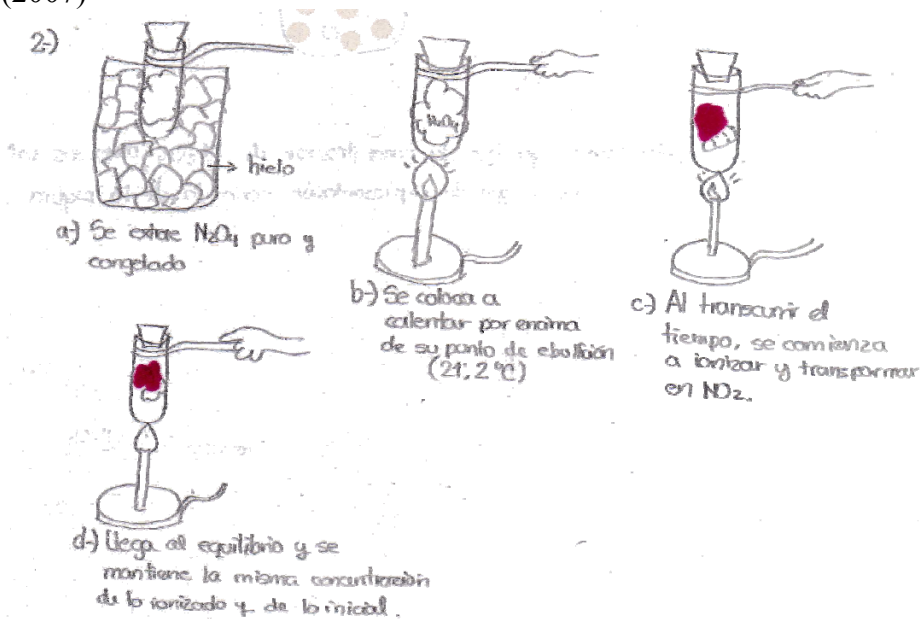 (2007)
2-)
→ hielo
a-) Se extrae N₂O₄ puro y
congelado
N₂O₄
b-) Se coloca a
calentar por encima
de su punto de ebullición
(21,2 °C)
c-) Al transcurrir el
tiempo, se comienza
a ionizar y transformar
en NO₂.
d-) Llega al equilibrio y se
mantiene la misma concentración
de lo ionizado y de lo inicial.